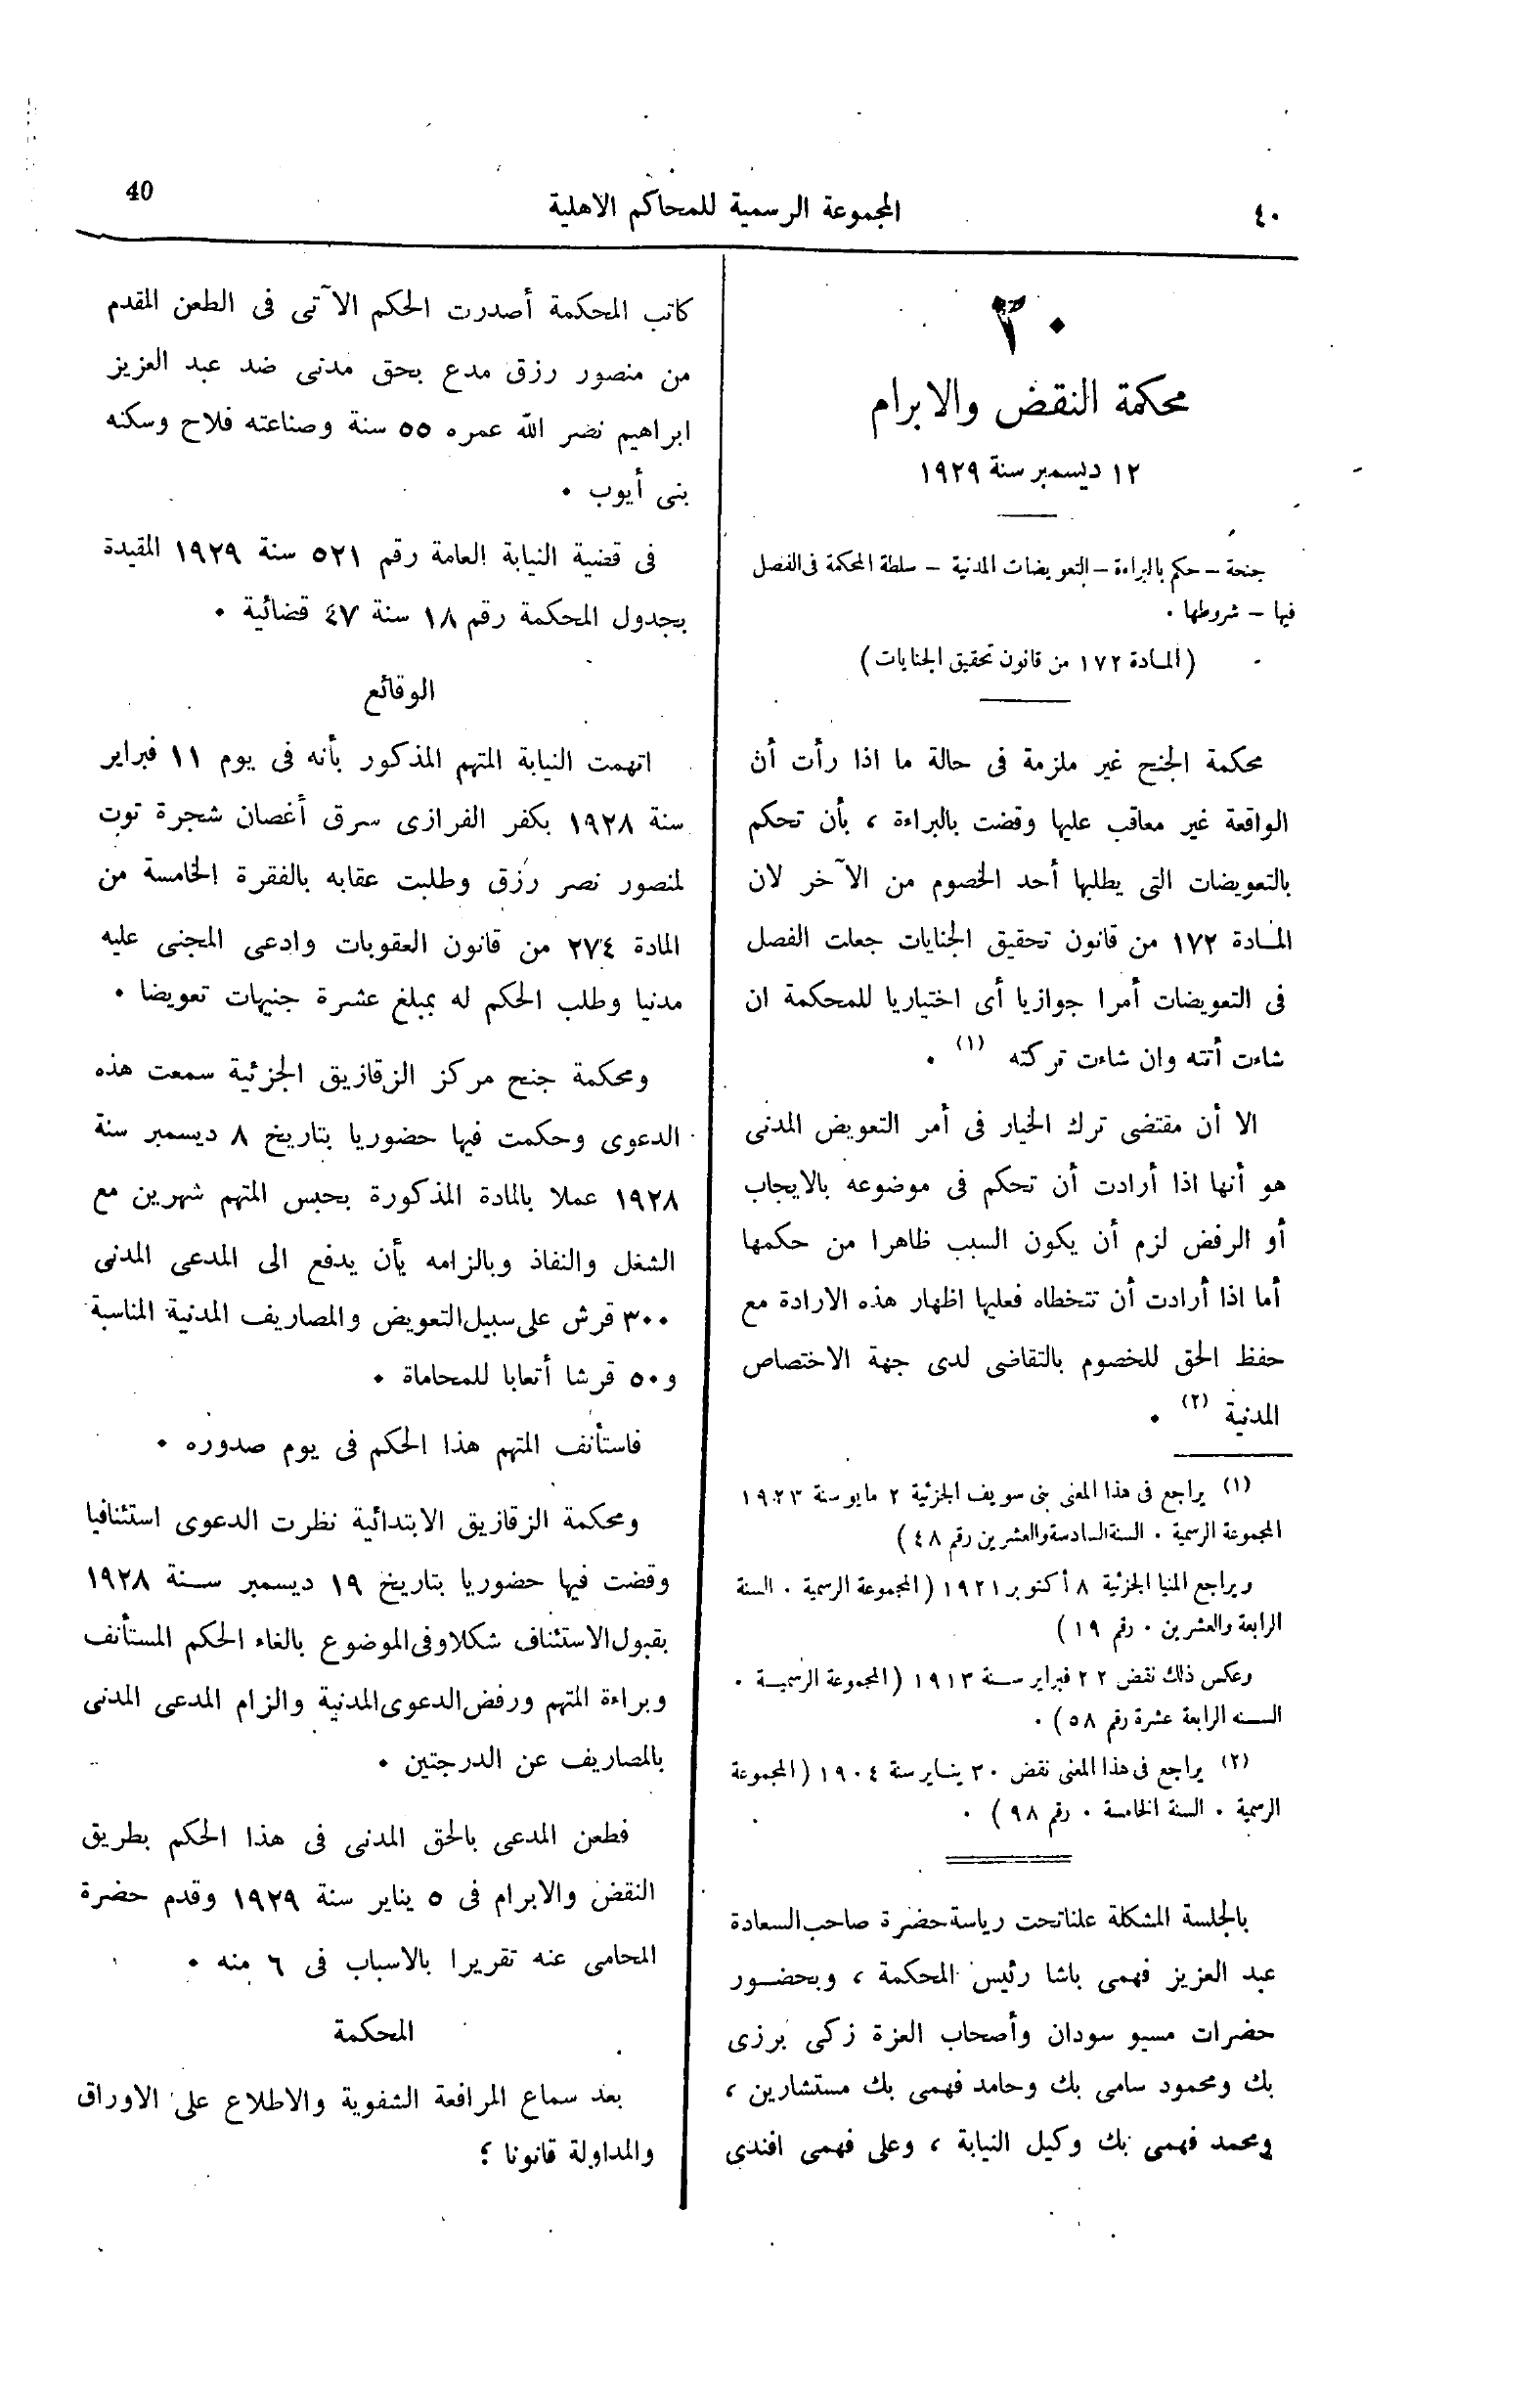 ٤٠
المجموعة الرسمية للمحاكم الاهلية
40
٣٠
محكمة النقض والابرام
١٢ ديسمبر سنة ١٩٢٩
جنحة – حكم بالبراءة – التعويضات المدنية – سلطة المحكمة فى الفصل
فيها – شروطها .
(المادة ١٧٢ من قانون تحقيق الجنايات)
محكمة الجنح غير ملزمة فى حالة ما اذا رأت أن
الواقعة غير معاقب عليها وقضت بالبراءة ، بأن تحكم
بالتعويضات التى يطلبها أحد الخصوم من الآخر لان
المادة ١٧٢ من قانون تحقيق الجنايات جعلت الفصل
فى التعويضات أمرا جوازيا أى اختياريا للمحكمة ان
شاءت أتته وان شاءت تركته (١) .
الا أن مقتضى ترك الخيار فى أمر التعويض المدنى
هو أنها اذا أرادت أن تحكم فى موضوعه بالايجاب
أو الرفض لزم أن يكون السبب ظاهرا من حكمها
أما اذا أرادت أن تتخطاه فعليها اظهار هذه الارادة مع
حفظ الحق للخصوم بالتقاضى لدى جهة الاختصاص
المدنية (٢) .
(١) يراجع فى هذا المعنى بنى سويف الجزئية ٢ مايو سنة ١٩٢٣
المجموعة الرسمية . السنة السادسة والعشرين رقم ٤٨)
ويراجع المنيا الجزئية ٨ أكتوبر ١٩٢١ (المجموعة الرسمية . السنة
الرابعة والعشرين . رقم ١٩)
وعكس ذلك نقض ٢٢ فبراير سنة ١٩١٣ (المجموعة الرسمية .
السنه الرابعة عشرة رقم ٥٨) .
(٢) يراجع فى هذا المعنى نقض ٣٠ يناير سنة ١٩٠٤ (المجموعة
الرسمية . السنة الخامسة . رقم ٩٨) .
بالجلسة المشكلة علنا تحت رياسة حضرة صاحب السعادة
عبد العزيز فهمى باشا رئيس المحكمة ، وبحضور
حضرات مسيو سودان وأصحاب العزة زكى برزى
بك ومحمود سامى بك وحامد فهمى بك مستشارين ،
ومحمد فهمى بك وكيل النيابة ، وعلى فهمى افندى
كاتب المحكمة أصدرت الحكم الآتى فى الطعن المقدم
من منصور رزق مدع بحق مدنى ضد عبد العزيز
ابراهيم نصر الله عمره ٥٥ سنة وصناعته فلاح وسكنه
بنى أيوب .
فى قضية النيابة العامة رقم ٥٢١ سنة ١٩٢٩ المقيدة
بجدول المحكمة رقم ١٨ سنة ٤٧ قضائية .
الوقائع
اتهمت النيابة المتهم المذكور بأنه فى يوم ١١ فبراير
سنة ١٩٢٨ بكفر الفرازى سرق أغصان شجرة توت
لمنصور نصر رزق وطلبت عقابه بالفقرة الخامسة من
المادة ٢٧٤ من قانون العقوبات وادعى المجنى عليه
مدنيا وطلب الحكم له بمبلغ عشرة جنيهات تعويضا .
ومحكمة جنح مركز الزقازيق الجزئية سمعت هذه
الدعوى وحكمت فيها حضوريا بتاريخ ٨ ديسمبر سنة
١٩٢٨ عملا بالمادة المذكورة بحبس المتهم شهرين مع
الشغل والنفاذ وبالزامه بأن يدفع الى المدعى المدنى
٣٠٠ قرش على سبيل التعويض والمصاريف المدنية المناسبة
و٥٠ قرشا أتعابا للمحاماة .
فاستأنف المتهم هذا الحكم فى يوم صدوره .
ومحكمة الزقازيق الابتدائية نظرت الدعوى استئنافيا
وقضت فيها حضوريا بتاريخ ١٩ ديسمبر سنة ١٩٢٨
بقبول الاستئناف شكلا وفى الموضوع بالغاء الحكم المستأنف
وبراءة المتهم ورفض الدعوى المدنية والزام المدعى المدنى
بالمصاريف عن الدرجتين .
فطعن المدعى بالحق المدنى فى هذا الحكم بطريق
النقض والابرام فى ٥ يناير سنة ١٩٢٩ وقدم حضرة
المحامى عنه تقريرا بالاسباب فى ٦ منه .
المحكمة
بعد سماع المرافعة الشفوية والاطلاع على الاوراق
والمداولة قانونا ؛